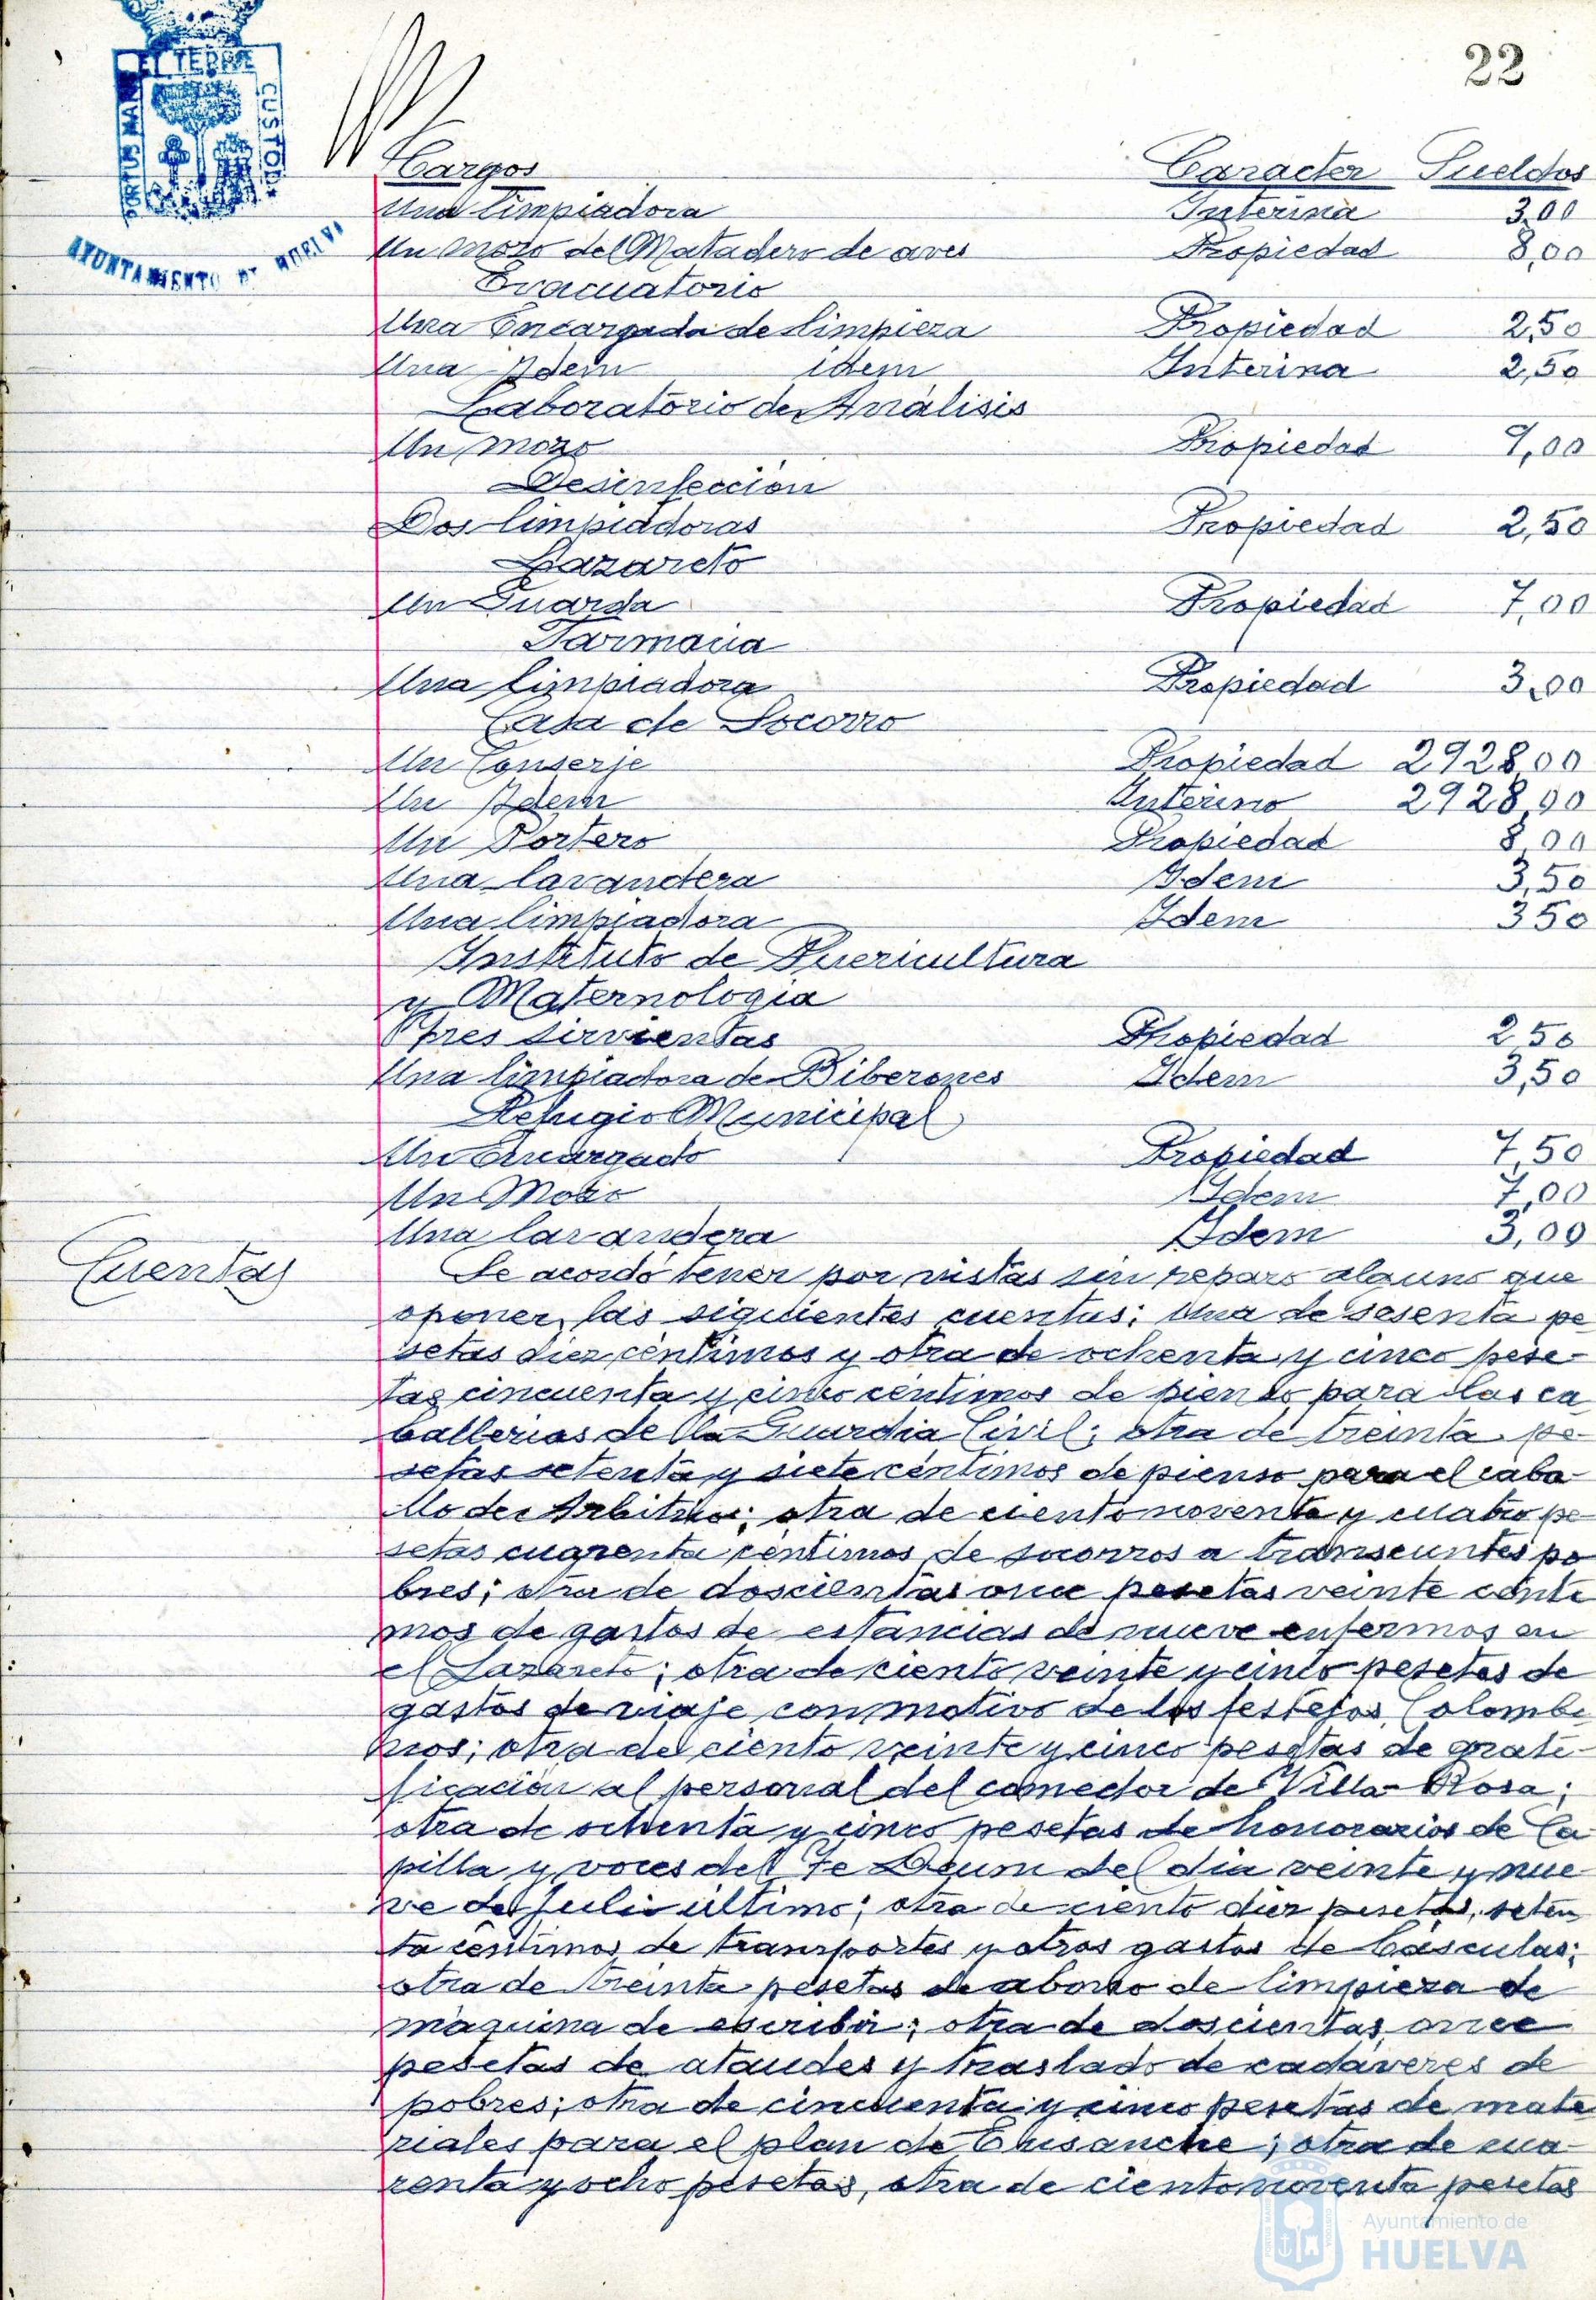 22
PORTUS MARIS ET TERRE CUSTODI
AYUNTAMIENTO DE HUELVA
Cargos Caracter Sueldos
Una limpiadora Interina 3,00
Un mozo del Matadero de aves Propiedad 8,00
Evacuatorio
Una Encargada de limpieza Propiedad 2,50
Una Idem idem Interina 2,50
Laboratorio de Análisis
Un mozo Propiedad 9,00
Desinfección
Dos limpiadoras Propiedad 2,50
Lazareto
Un Guarda Propiedad 7,00
Farmacia
Una limpiadora Propiedad 3,00
Casa de Socorro
Un Conserje Propiedad 2928,00
Un Idem Interino 2928,00
Un Portero Propiedad 8,00
Una lavandera Idem 3,50
Una limpiadora Idem 350
Instituto de Puericultura
y Maternologia
Tres sirvientas Propiedad 2 50
Una limpiadora de Biberones Idem 3,50
Refugio Municipal
Un Encargado Propiedad 7,50
Un Mozo Idem 7,00
Una lavandera Idem 3,00
Cuentas
Se acordó tener por vistas sin reparo alguno que
oponer, las siguientes cuentas: Una de sesenta pe
setas diez céntimos y otra de ochenta y cinco pese-
tas cincuenta y cinco céntimos de pienso para las ca
ballerias de la Guardia Civil; otra de treinta pe-
setas setenta y siete céntimos de pienso para el caba-
llo de Arbitrios; otra de ciento noventa y cuatro pe-
setas cuarenta céntimos de socorros a transeuntes po
bres; otra de doscientas once pesetas veinte cénti
mos de gastos de estancias de nueve enfermos en
el Lazareto; otra de ciento veinte y cinco pesetas de
gastos de viaje con motivo de los festejos Colombi
nos; otra de ciento veinte y cinco pesetas de grati-
ficación al personal del comedor de Villa Rosa;
otra de ochenta y cinco pesetas de honorarios de Ca
pilla y voces del Te Deum del dia veinte y nue
ve de Julio último; otra de ciento diez pesetas, seten
ta céntimos de transportes y otros gastos de básculas;
otra de treinta pesetas de abono de limpieza de
máquina de escribir; otra de doscientas once
pesetas de ataudes y traslado de cadáveres de
pobres; otra de cincuenta y cinco pesetas de mate
riales para el plan de Ensanche; otra de cua-
renta y ocho pesetas, otra de ciento noventa pesetas
Ayuntamiento de
HUELVA